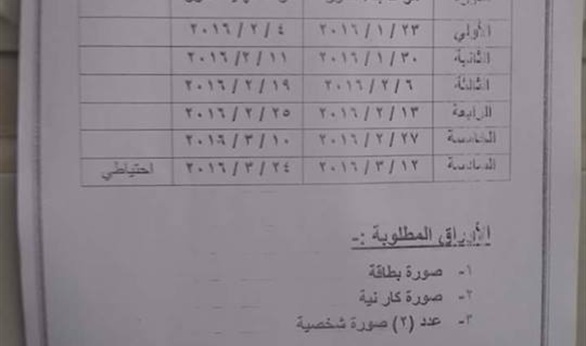 الأولي ٢٠١٦/١/٢٣ ٢٠١٦/٢/٤
الثانية ٢٠١٦/١/٣٠ ٢٠١٦/٢/١١
الثالثة ٢٠١٦/٢/٦ ٢٠١٦/٢/١٩
الرابعة ٢٠١٦/٢/١٣ ٢٠١٦/٢/٢٥
الخامسة ٢٠١٦/٢/٢٧ ٢٠١٦/٣/١٠
السادسة ٢٠١٦/٣/١٢ ٢٠١٦/٣/٢٤ احتياطي
الأوراق المطلوبة :-
١- صورة بطاقة
٢- صورة كارنية
٣- عدد (٢) صورة شخصية